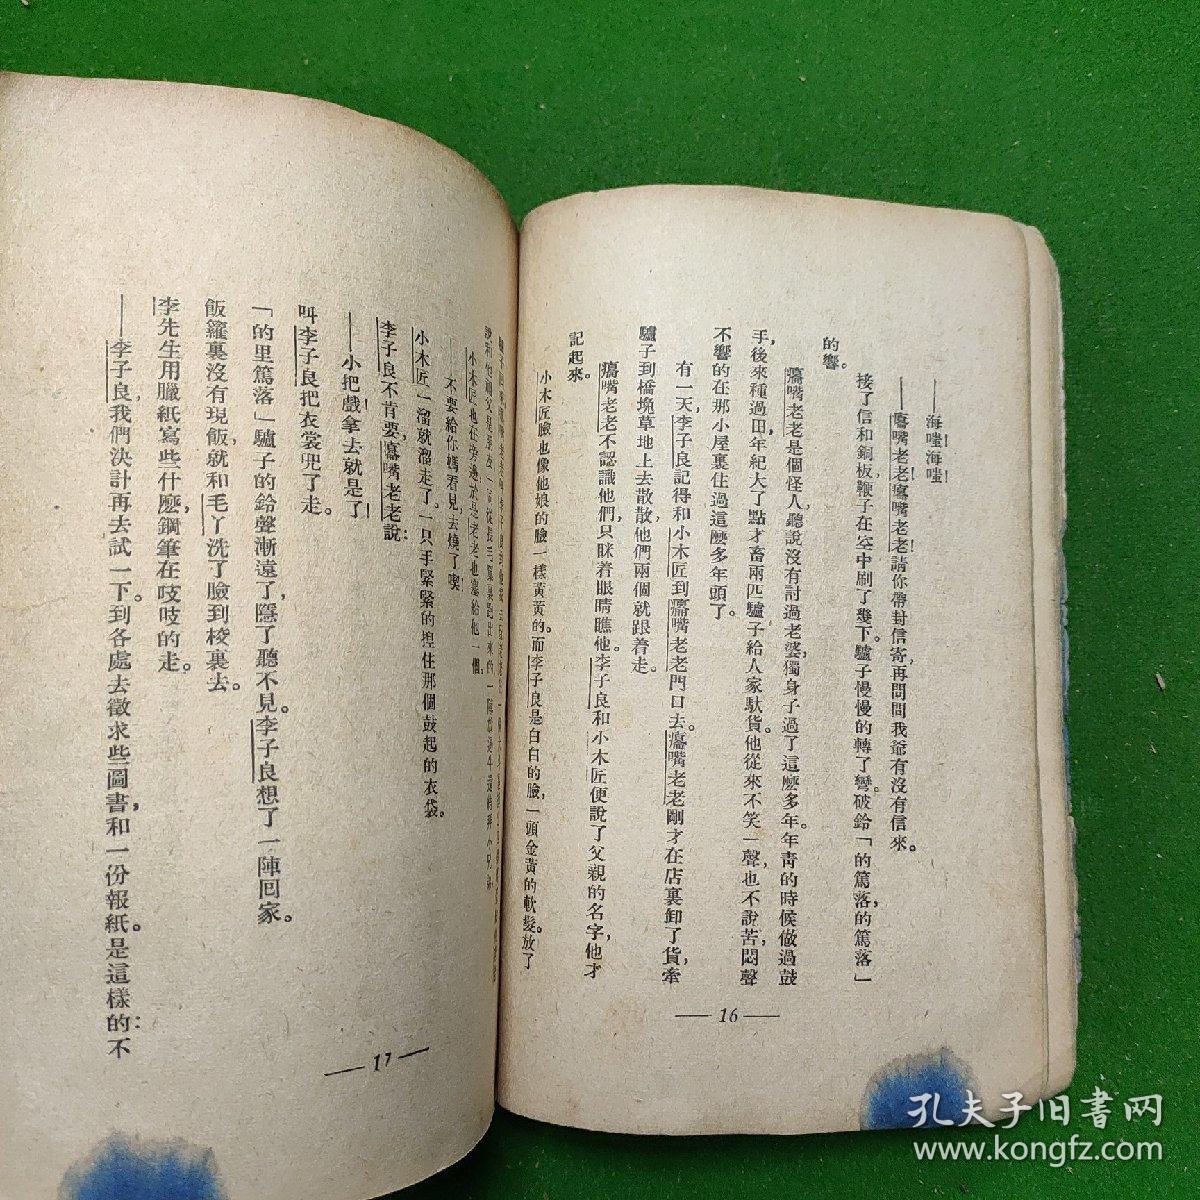 ——海嗤!海嗤!
——癟嘴老老!癟嘴老老!請你帶封信寄,再問問我爺有沒有信來。
接了信和銅板,鞭子在空中刷了幾下。驢子慢慢的轉了彎。破鈴「的篤落,的篤落」
的響。
癟嘴老老是個怪人,聽說沒有討過老婆,獨身子過了這麼多年。年靑的時候做過鼓
手,後來種過田,年紀大了點才畜兩匹驢子給人家馱貨。他從來不笑一聲,也不說苦,悶聲
不響的在那小屋裏住過這麼多年頭了。
有一天,李子良記得和小木匠到癟嘴老老門口去。癟嘴老老剛才在店裏卸了貨,牽
驢子到橋堍草地上去散散,他們兩個就跟着走。
癟嘴老老不認識他們,只眯着眼睛瞧他。李子良和小木匠便說了父親的名字,他才
記起來。
小木匠臉也像他娘的臉一樣黃黃的。而李子良是白白的臉,一頭金黃的軟髮。放了
——16——
小木匠也在旁邊
——不要給你媽看見去燒了喫
小木匠一溜就溜走了。一只手緊緊的捏住那個鼓起的衣袋。
李子良不肯要,癟嘴老老說:
——小把戲!拿去就是了!
叫李子良把衣裳兜了走。
「的里篤落」驢子的鈴聲漸遠了,隱了,聽不見。李子良想了一陣回家。
飯籮裏沒有現飯,就和毛丫洗了臉到校裏去。
李先生用臘紙寫些什麼,鋼筆在吱吱的走。
——李子良,我們決計再去試一下。到各處去徵求些圖書,和一份報紙。是這樣的:不
——17——
孔夫子旧書网
www.kongfz.com